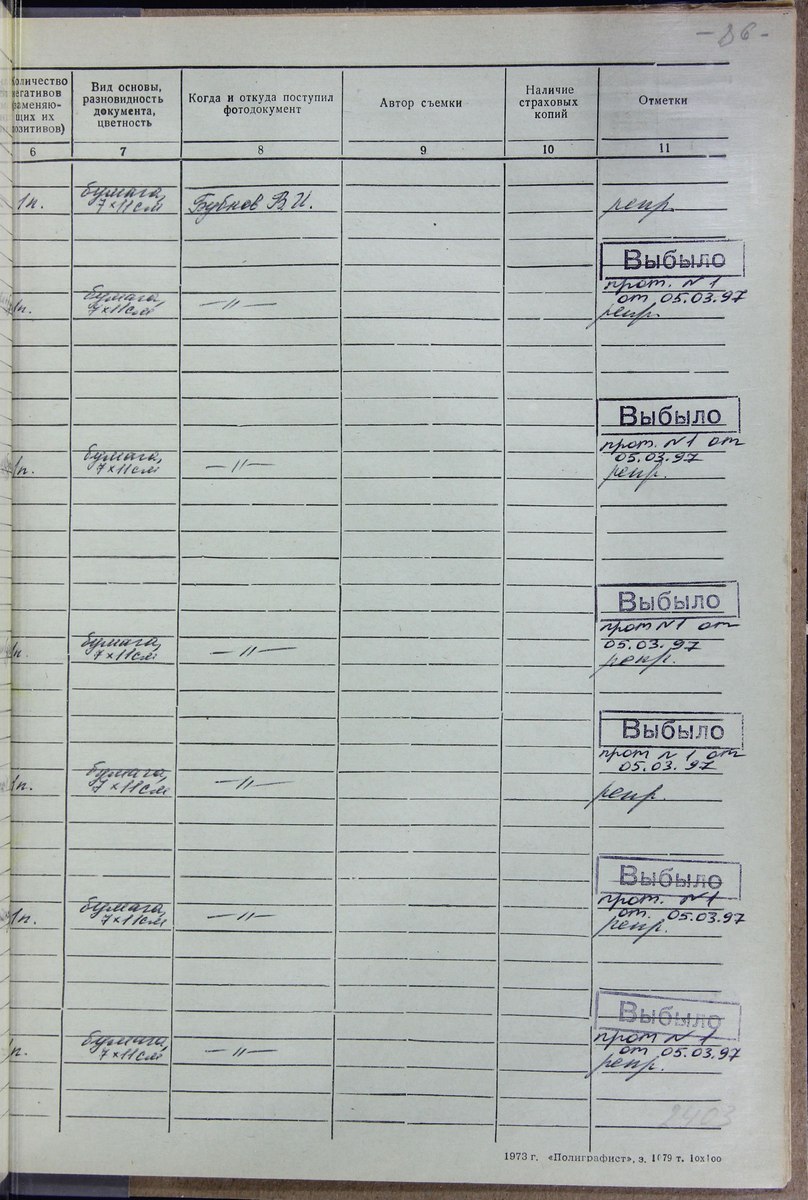 - 26 -
Количество
негативов
заменяю-
щих их
позитивов)
Вид основы,
разновидность
документа,
цветность
Когда и откуда поступил
фотодокумент
Автор съемки
Наличие
страховых
копий
Отметки
6 7 8 9 10 11
1п. бумага, 7×11см Бубнов В. И. репр.
Выбыло
прот. N 1
от 05.03.97
1п. бумага, 7×11см —〃— репр.
Выбыло
прот. N1 от
05.03.97
1п. бумага, 7×11см —〃— репр.
Выбыло
прот N1 от
05.03.97
1п. бумага, 7×11см —〃— репр.
Выбыло
прот N 1 от
05.03.97
1п. бумага, 7×11см —〃— репр.
Выбыло
прот. N1
от. 05.03.97
1п. бумага, 7×11см —〃— репр.
Выбыло
прот N 1
от 05.03.97
1п. бумага, 7×11см —〃— репр.
2403
1973 г. «Полиграфист», з. 1079 т. 10х100